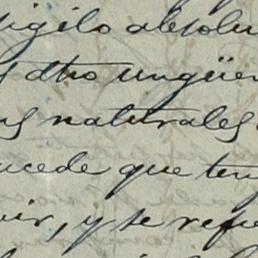 sigilo absolu
dho ungüen
naturales.
ucede que ten
vir, y se refie